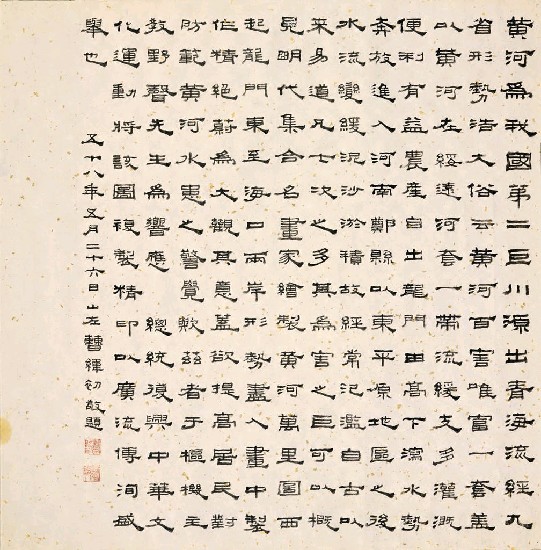 黃河為我國第二巨川源出青海流經九
省形勢浩大俗云黃河百害唯富一套蓋
以黃河在綏遠河套一帶流緩支多灌溉
便利有益農產自出龍門由高下瀉水勢
奔放進入河南鄭縣以東平原地區之後
水流變緩泥沙淤積故經常氾濫自古以
來易道凡七次之多其為害之巨可以概
見明代集合名畫家繪製黃河萬里圖西
起龍門東至海口兩岸形勢盡入畫中製
作精絕蔚為大觀其意蓋欲提高居民對
防範黃河水患之警覺歟茲者于樞機主
教野聲先生為響應 總統復興中華文
化運動將該圖複製精印以廣流傳洵盛
舉也
五十八年五月二十六日山左曹緯初敬題